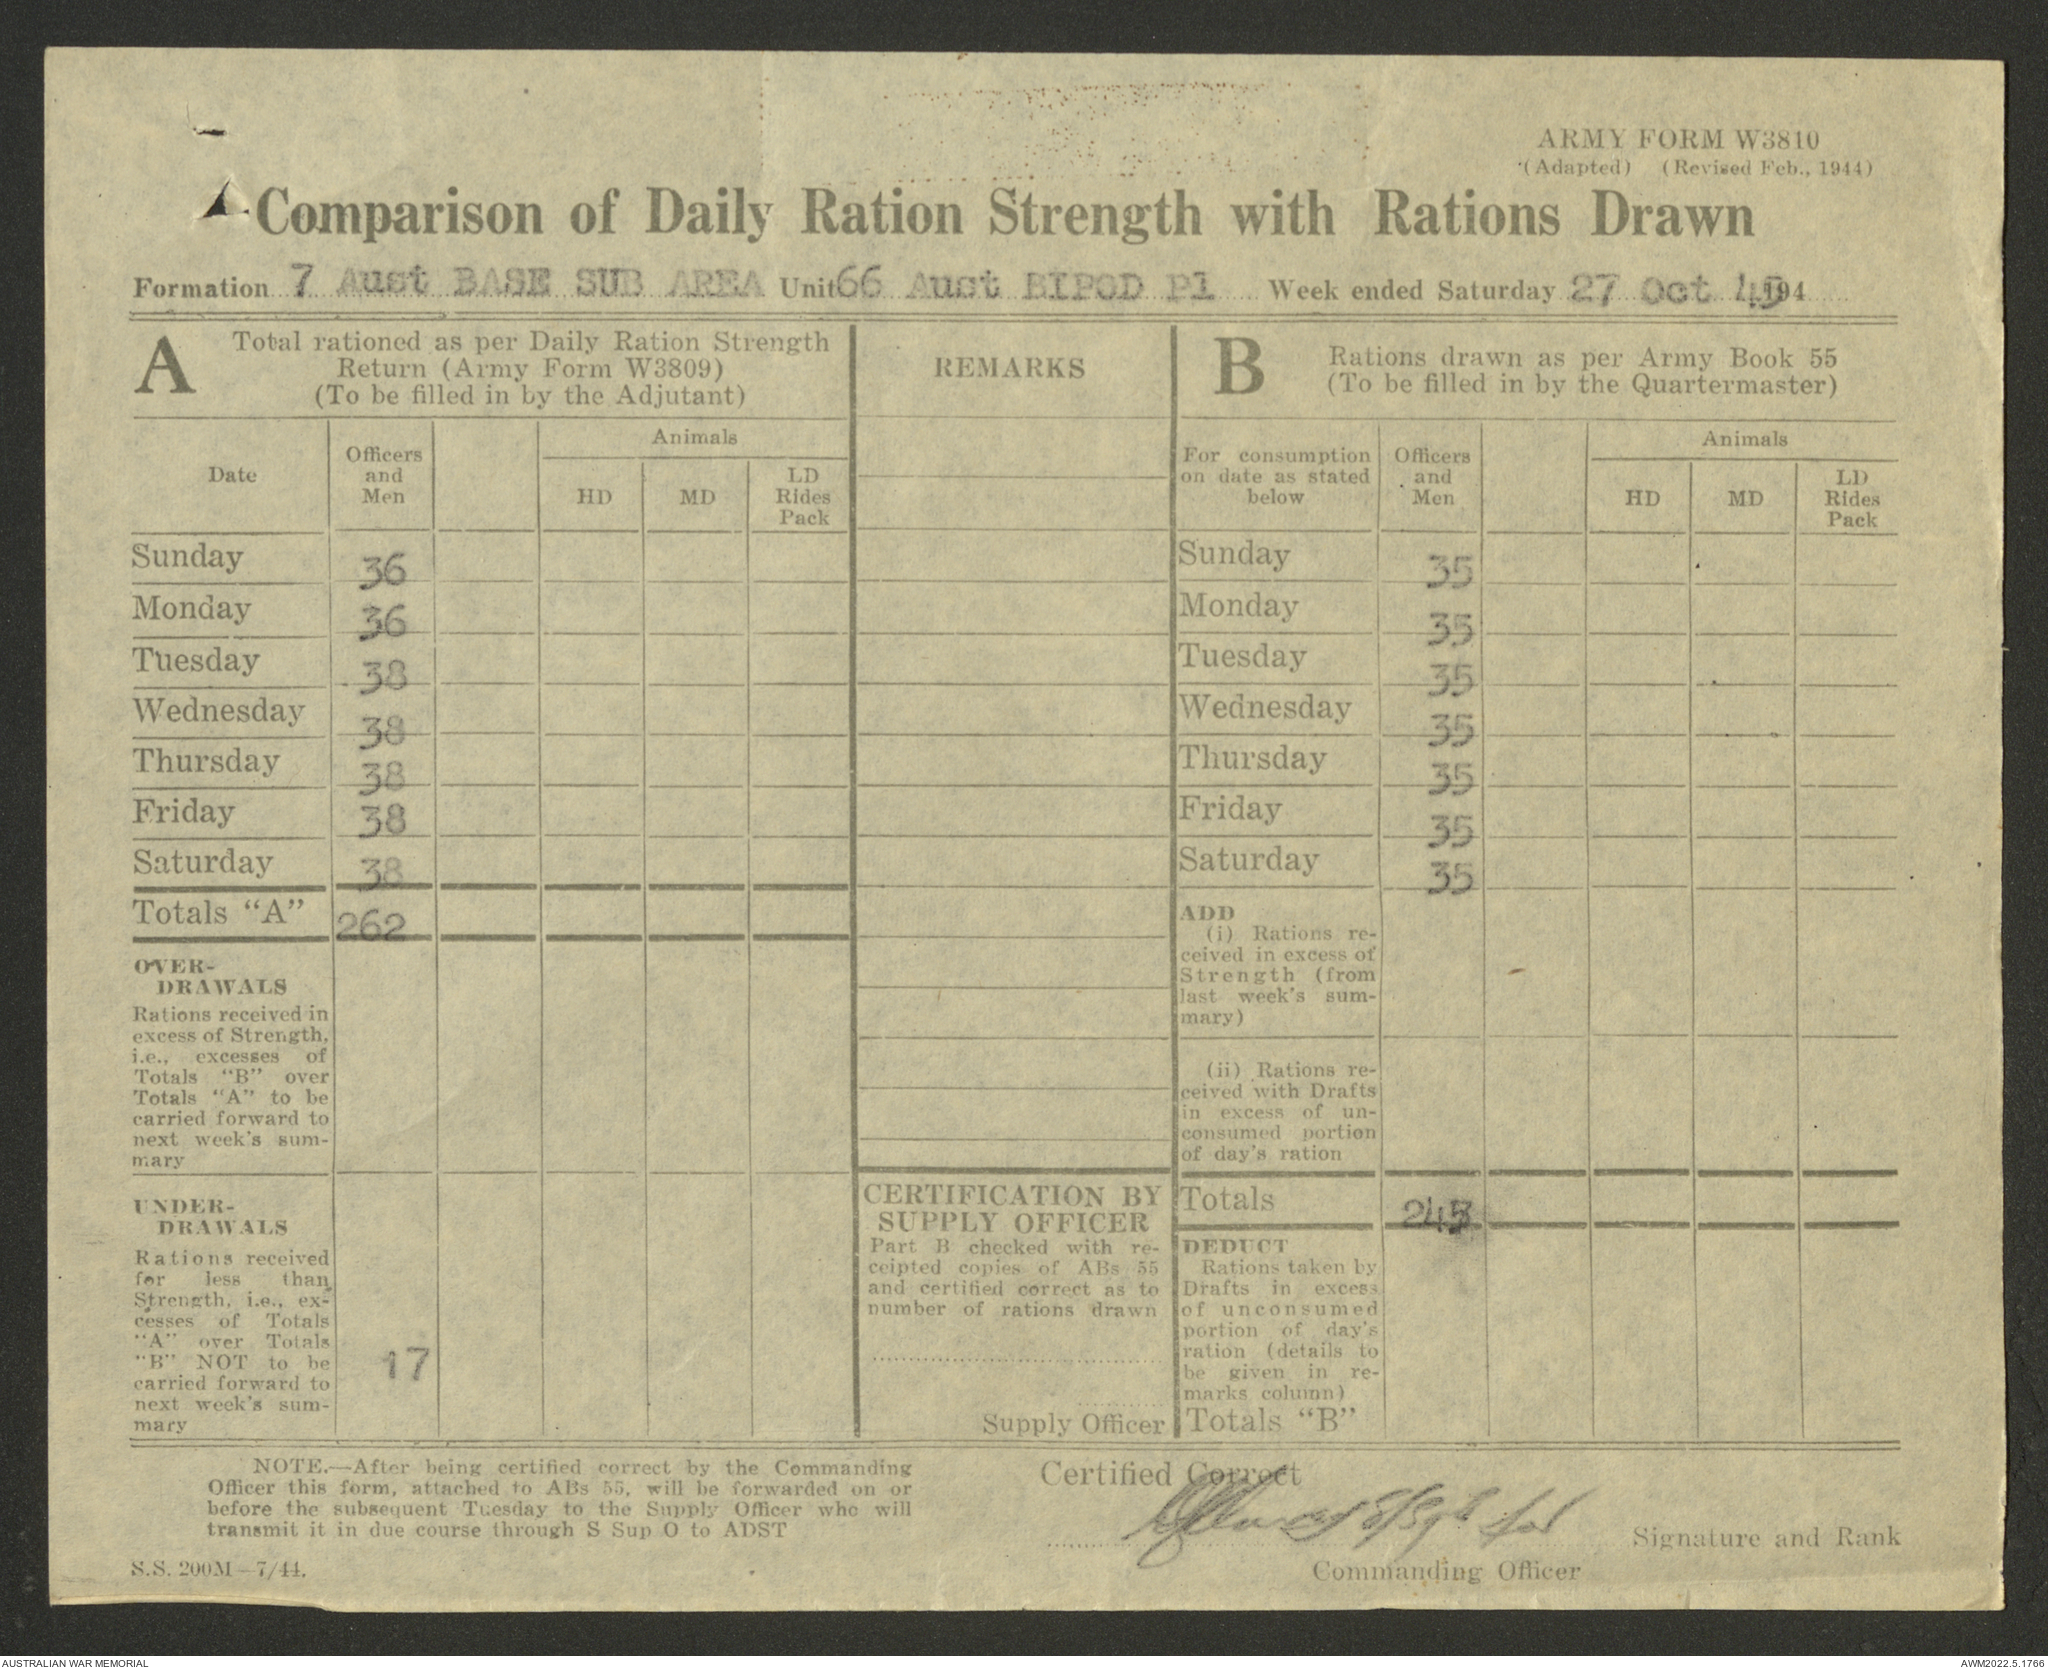 ARMY FORM W3810
(Adapted) (Revised Feb., 1944)
Comparison of Daily Ration Strength with Rations Drawn
Formation 7 Aust BASE SUB AREA Unit 66 Aust BIPOD Pl Week ended Saturday 27 Oct 45 194
A
Total rationed as per Daily Ration Strength
Return (Army Form W3809)
(To be filled in by the Adjutant)
Date
Officers
and
Men
Animals
HD
MD
LD
Rides
Pack
Sunday 36
Monday 36
Tuesday 38
Wednesday 38
Thursday 38
Friday 38
Saturday 38
Totals "A" 262
OVER-
DRAWALS
Rations received in
excess of Strength,
i.e., excesses of
Totals "B" over
Totals "A" to be
carried forward to
next week's sum-
mary
UNDER-
DRAWALS
Rations received
for less than
Strength, i.e., ex-
cesses of Totals
"A" over Totals
"B" NOT to be
carried forward to
next week's sum-
mary
17
REMARKS
CERTIFICATION BY
SUPPLY OFFICER
Part B checked with re-
ceipted copies of ABs 55
and certified correct as to
number of rations drawn
Supply Officer
B
Rations drawn as per Army Book 55
(To be filled in by the Quartermaster)
For consumption
on date as stated
below
Officers
and
Men
Animals
HD
MD
LD
Rides
Pack
Sunday 35
Monday 35
Tuesday 35
Wednesday 35
Thursday 35
Friday 35
Saturday 35
ADD
(i) Rations re-
ceived in excess of
Strength (from
last week's sum-
mary)
(ii) Rations re-
ceived with Drafts
in excess of un-
consumed portion
of day's ration
Totals 245
DEDUCT
Rations taken by
Drafts in excess
of unconsumed
portion of day's
ration (details to
be given in re-
marks column)
Totals "B"
NOTE.—After being certified correct by the Commanding
Officer this form, attached to ABs 55, will be forwarded on or
before the subsequent Tuesday to the Supply Officer who will
transmit it in due course through S Sup O to ADST
S.S. 200M—7/44.
Certified Correct
S/Sgt for
Signature and Rank
Commanding Officer
AUSTRALIAN WAR MEMORIAL
AWM2022.5.1766